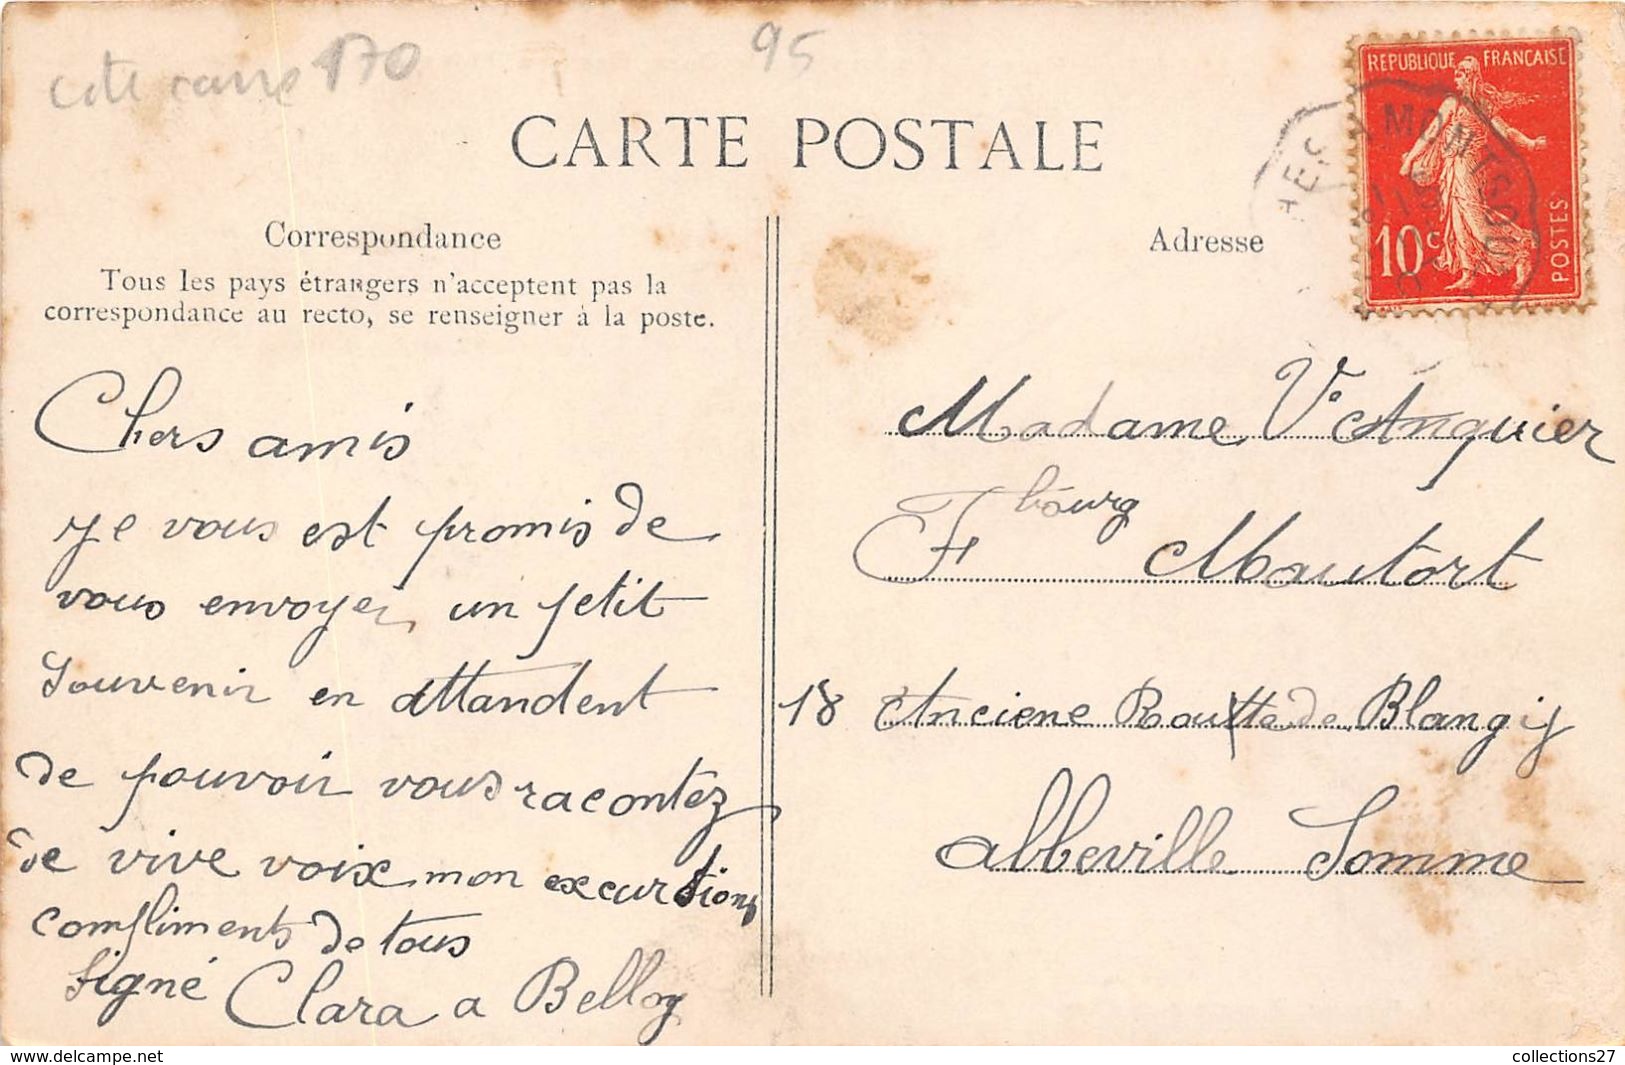 cote rare 170
95
CARTE POSTALE
REPUBLIQUE FRANÇAISE
10c
POSTES
A MONTSOU
Correspondance
Tous les pays étrangers n'acceptent pas la
correspondance au recto, se renseigner à la poste.
Chers amis
je vous est promis de
vous envoyer un petit
souvenir en attandent
de pouvoir vous racontez
de vive voix mon excurtions
compliments de tous
signé Clara a Belloy
Adresse
Madame Ve Anquier
Fbourg Mautort
18 Anciene Routte de Blangiy
abbeville Somme
www.delcampe.net
collections27